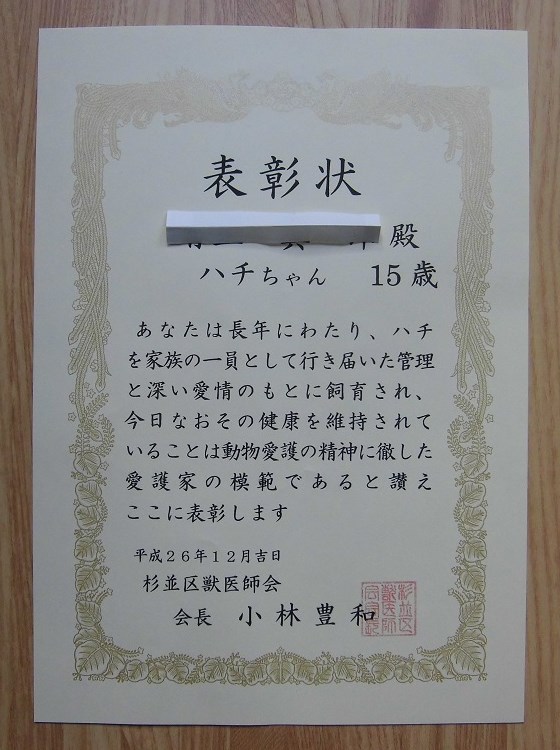 表彰状
殿
ハチちゃん 15歳
あなたは長年にわたり、ハチ
を家族の一員として行き届いた管理
と深い愛情のもとに飼育され、
今日なおその健康を維持されて
いることは動物愛護の精神に徹した
愛護家の模範であると讃え
ここに表彰します
平成26年12月吉日
杉並区獣医師会
会長 小林豊和
杉並区
獣医師
会会長